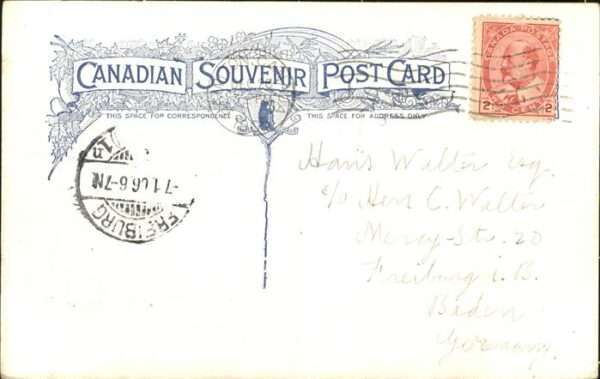 CANADIAN SOUVENIR POST CARD
THIS SPACE FOR CORRESPONDENCE
THIS SPACE FOR ADDRESS ONLY
CANADA POSTAGE
2 2
FREIBURG
-7.1.06.6-7N
Hans Walter Esq.
c/o Herr C. Walter
Mercy-Str. 20
Freiburg i. B.
Baden
Germany